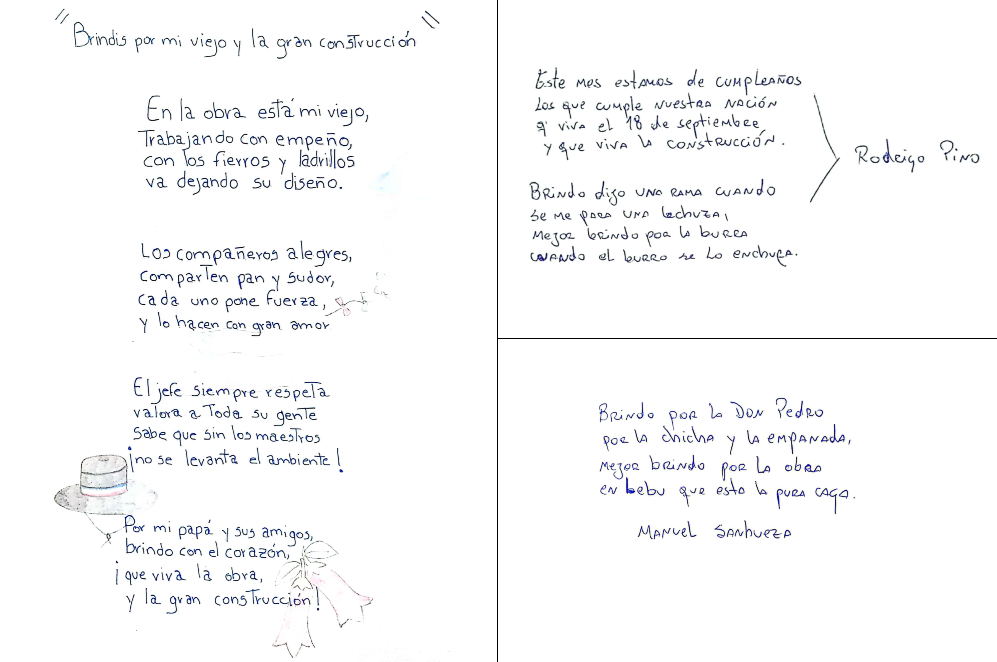 " Brindis por mi viejo y la gran construcción "
En la obra está mi viejo,
Trabajando con empeño,
con los fierros y ladrillos
va dejando su diseño.
Los compañeros alegres,
comparten pan y sudor,
cada uno pone fuerza,
y lo hacen con gran amor
El jefe siempre respeta
valora a Toda su gente
Sabe que sin los maestros
¡no se levanta el ambiente!
Por mi papá y sus amigos,
brindo con el corazón,
¡que viva la obra,
y la gran construcción!
Este mes estamos de cumpleaños
Los que cumple nuestra nación
q' viva el 18 de septiembre
y que viva la construcción.
Brindo dijo una rama cuando
se me para una lechuza,
mejor brindo por la burra
cuando el burro se lo enchufa.
Rodrigo Pino
Brindo por la Don Pedro
por la chicha y la empanada,
mejor brindo por la obra
en que esta la pura caga.
Manuel Sanhueza